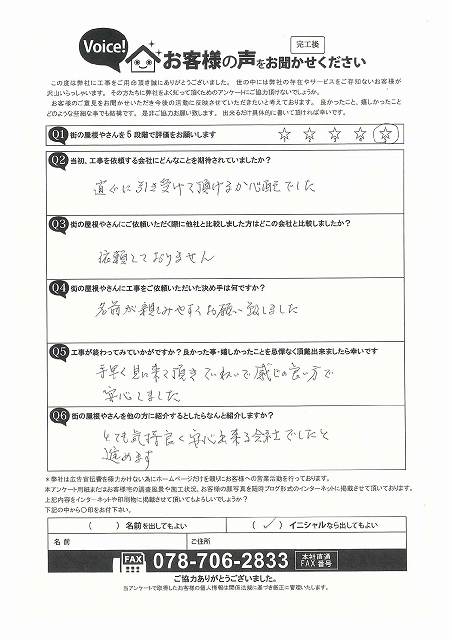 Voice!
完工後
お客様の声をお聞かせください
この度は弊社に工事をご用命頂き誠にありがとうございました。 世の中には弊社の存在やサービスをご存知ないお客様が
沢山いらっしゃいます。 その方たちに弊社をよく知って頂くためのアンケートにご協力頂けないでしょうか。
お客様のご意見をお聞かせいただき今後の活動に反映させていただきたいと考えております。 良かったこと、嬉しかったこと
どのような些細な事でも結構です。 是非ご協力お願い致します。 出来るだけ具体的に書いて頂ければ幸いです。
Q1 街の屋根やさんを5段階で評価をお願いします ☆ ☆ ☆ ☆ ☆
Q2 当初、工事を依頼する会社にどんなことを期待されていましたか?
直ぐに引き受けて頂けるか心配でした
Q3 街の屋根やさんにご依頼いただく際に他社と比較しました方はどこの会社と比較しましたか?
依頼しておりません
Q4 街の屋根やさんに工事をご依頼いただいた決め手は何ですか?
名前が親しみやすくお願い致しました
Q5 工事が終わってみていかがですか?良かった事・嬉しかったことを忌憚なく頂戴出来ましたら幸いです
手早く見に来て頂きていねいで感じの良い方で
安心しました
Q6 街の屋根やさんを他の方に紹介するとしたらなんと紹介しますか?
とても気持良く安心出来る会社でしたと
進めます
*弊社は広告宣伝費を極力かけない為にホームページだけを頼りにお客様への営業活動を行っております。
本アンケート用紙またはお客様宅の調査風景や施工状況、お客様の顔写真を随時ブログ形式のインターネットに掲載させて頂いております。
上記内容をインターネットや印刷物に掲載させて頂いてもよろしいでしょうか?
下記の中から〇印をお付下さい。
( )名前を出してもよい
(✓)イニシャルなら出してもよい
名前
ご住所
FAX 078-706-2833 本社直通 FAX番号
ご協力ありがとうございました。
当アンケートで取得したお客様の個人情報は関係法規に基づき厳正に管理いたします。